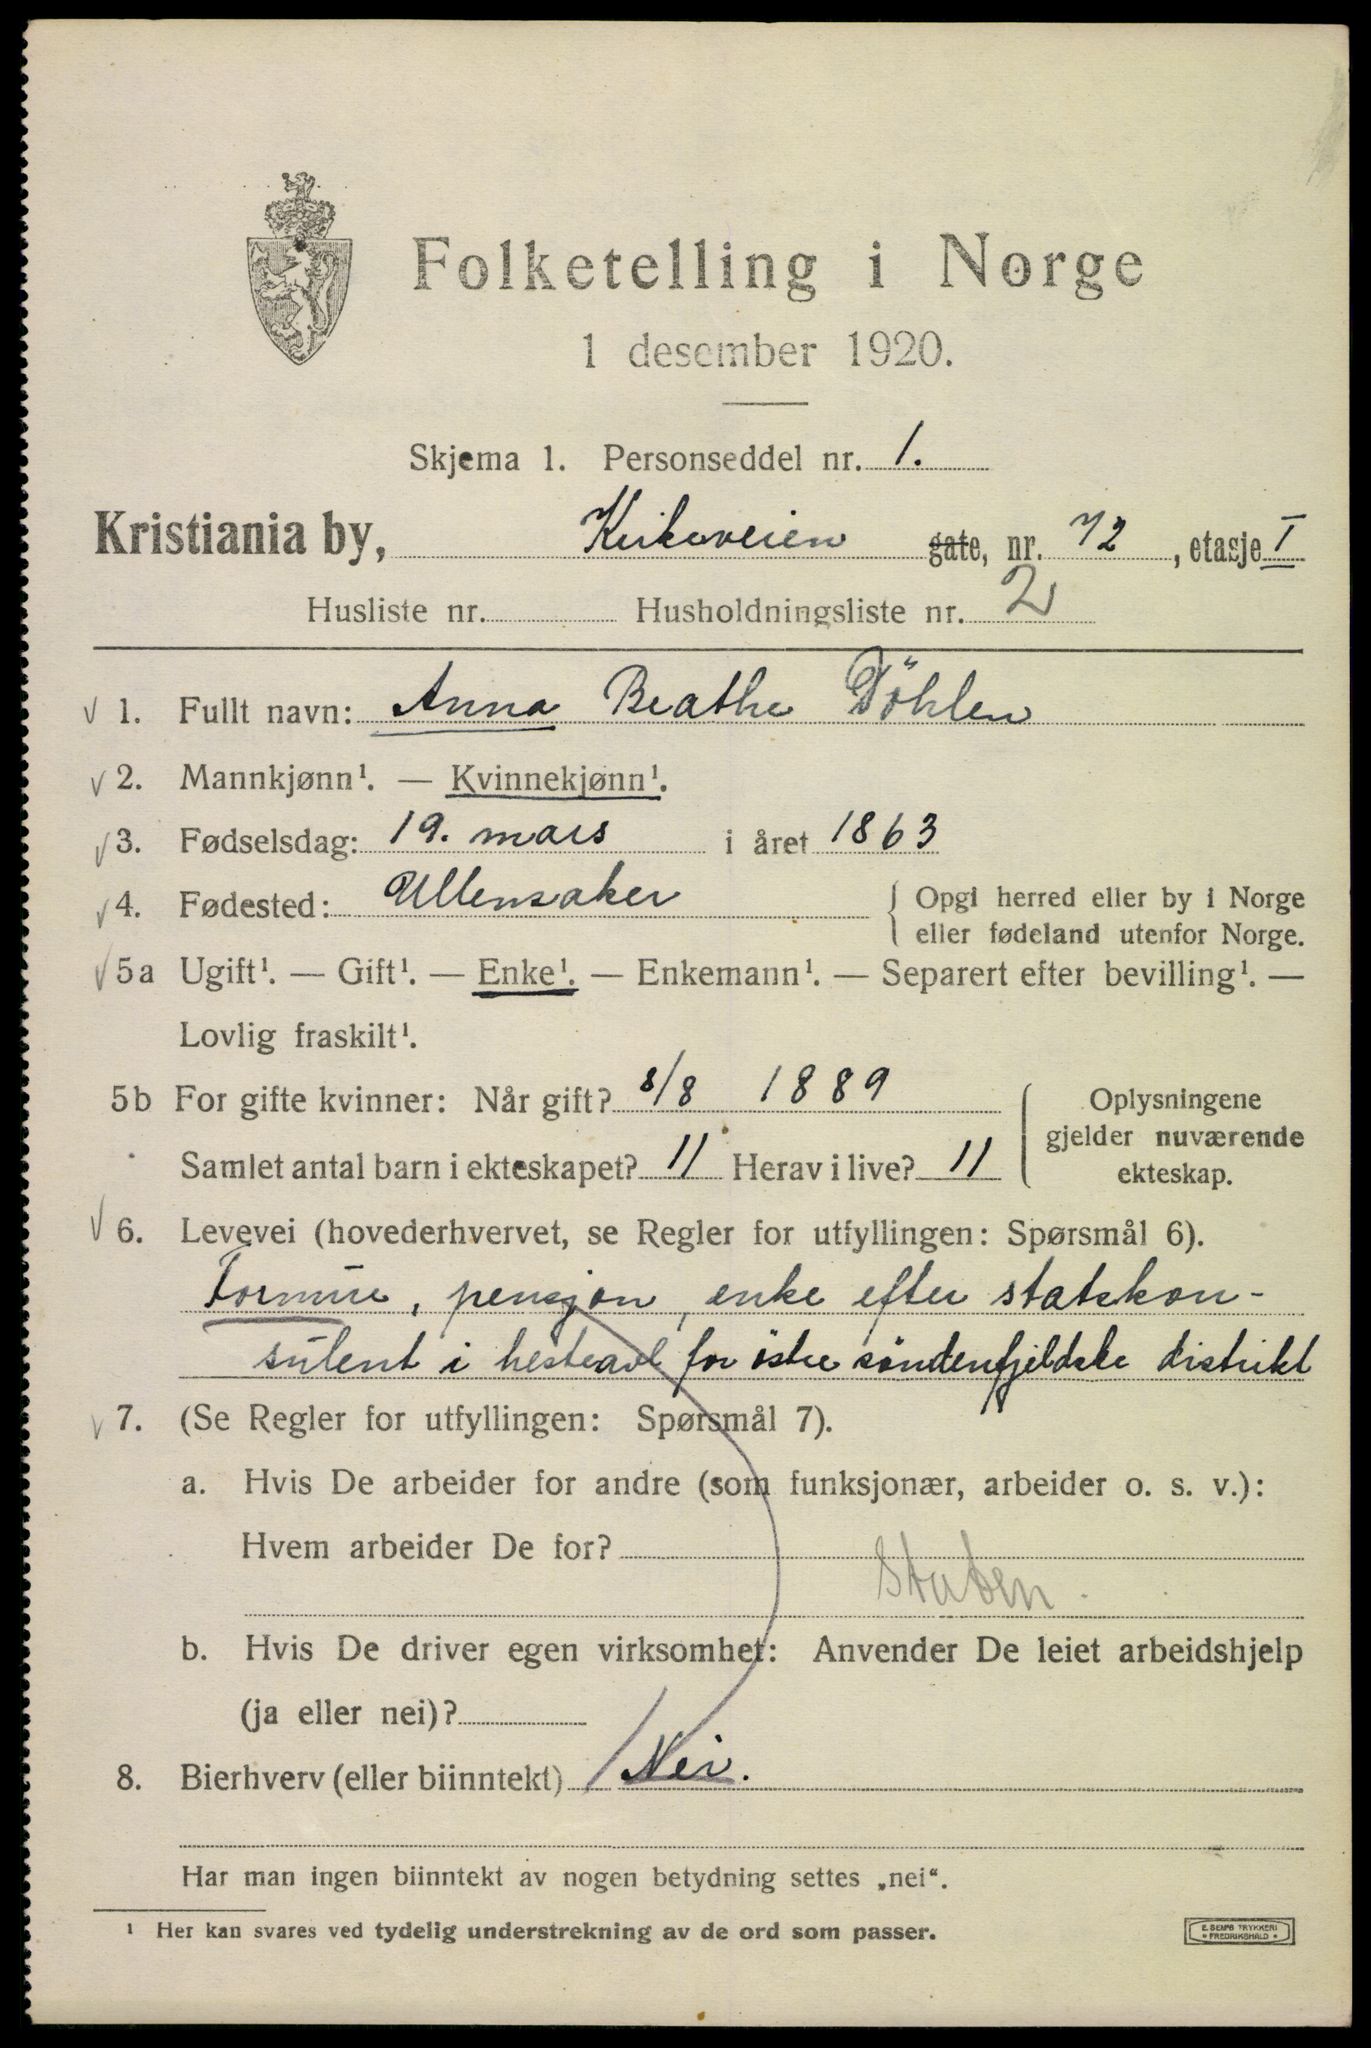 Folketelling i Norge
1 desember 1920.
Skjema 1. Personseddel nr. 1.
Kristiania by, Kirkeveien gate, nr. 72, etasje I
Husliste nr. Husholdningsliste nr. 2
√ 1. Fullt navn: Anna Beathe Döhlen
√ 2. Mannkjønn¹. — Kvinnekjønn¹.
√ 3. Fødselsdag: 19. mars i året 1863
√ 4. Fødested: Ullensaker { Opgi herred eller by i Norge
eller fødeland utenfor Norge.
√ 5a Ugift¹. — Gift¹. — Enke¹. — Enkemann¹. — Separert efter bevilling¹. —
Lovlig fraskilt¹.
5b For gifte kvinner: Når gift? 8/8 1889
Samlet antal barn i ekteskapet? 11 Herav i live? 11
Oplysningene
gjelder nuværende
ekteskap.
√ 6. Levevei (hovederhvervet, se Regler for utfyllingen: Spørsmål 6).
Formue, pensjon, enke efter statskon-
sulent i hesteavl for östre söndenfjeldske distrikt
√ 7. (Se Regler for utfyllingen: Spørsmål 7).
a. Hvis De arbeider for andre (som funksjonær, arbeider o. s. v.):
Hvem arbeider De for?
Staten.
b. Hvis De driver egen virksomhet: Anvender De leiet arbeidshjelp
(ja eller nei)?
8. Bierhverv (eller biinntekt) Nei.
Har man ingen biinntekt av nogen betydning settes „nei“.
¹ Her kan svares ved tydelig understrekning av de ord som passer.
E. SEM'S TRYKKERI
FREDRIKSHALD